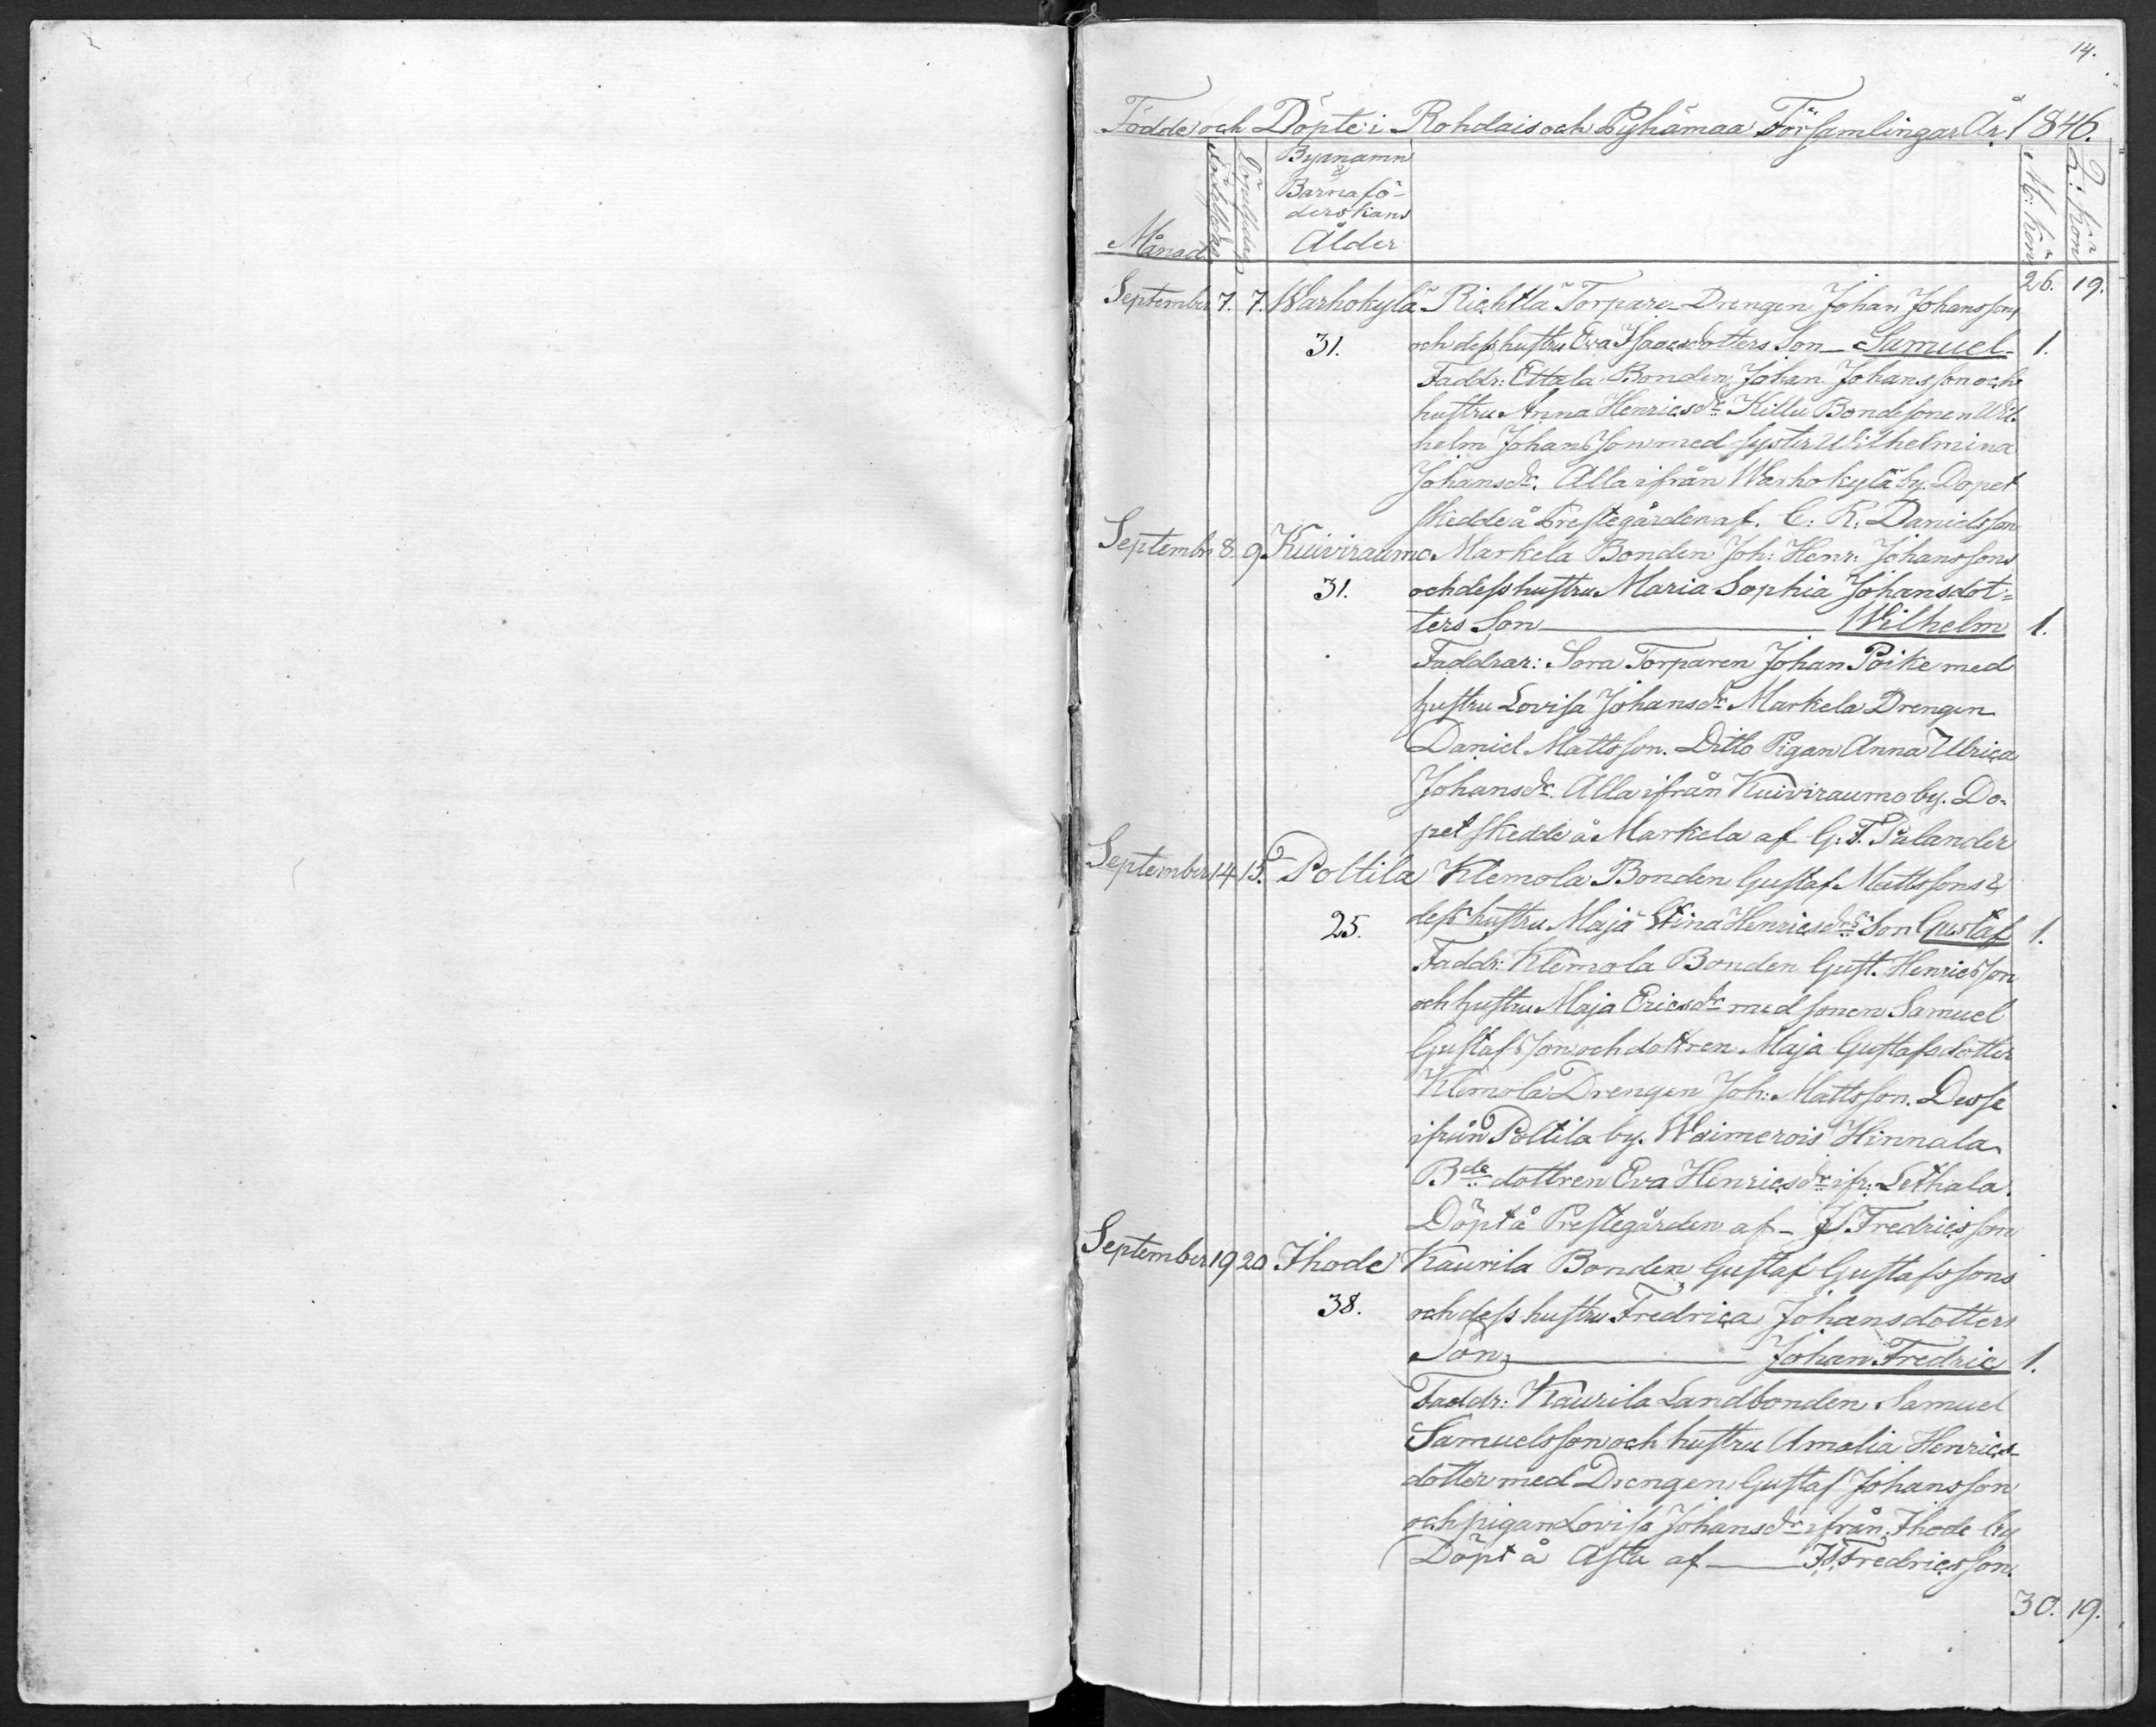 14.
Födde och Döpte i Rohdais och Pyhämaa Församlingar År 1846.
Månad
Födelsedag
Döpelsedag
Byanamn
&
Barnafö-
derskans
Ålder
M: Kön
Q: Kön
26. 19.
September 7. 7. Warhokylä Richtla Torpare-Drengen Johan Johanssons
31. och dess hustru Eva Isaacsdotters Son - Samuel - 1.
Faddr: Ettala Bonden Johan Johansson och
hustru Anna Henricsdr Killu Bondesonen Wil-
helm Johansson med syster Wilhelmina
Johansdr. Alla ifrån Warhokylä by. Dopet
skedde å Prestegården af. C. R. Danielsson
Septembr 8. 9. Kuiviraumo Markela Bonden Joh: Henr: Johanssons
31. och dess hustru Maria Sophia Johansdot=
ters Son Wilhelm 1.
Faddrar: Sora Torparen Johan Poike med
hustru Lovisa Johansdr Markela Drengen
Daniel Mattsson. Ditto Pigan Anna Ulrica
Johansdr. Alla ifrån Kuiviraumo by. Do-
pet skedde å Markela af G. T. Palander
September 14 15. Poltila Klemola Bonden Gustaf Mattssons &
25. dess hustru Maja Stina Henricsdrs Son Gustaf 1.
Faddr: Klemola Bonden Gust. Henricsson
och hustru Maja Ericsdr med sonen Samuel
Gustafsson och dottren Maja Gustafsdotter
Klemola Drengen Joh: Mattsson. Desse
ifrån Poltila by. Waimerois Hinnala
Bde dottren Eva Henricsdr ifr: Lethala.
Döpt å Prestegården af - J Fredricsson
September 19 20 Ihode Kaurila Bonden Gustaf Gustafssons
38. och dess hustru Fredrica Johansdotters
Son, Johan Fredric 1.
Faddr: Kaurila Landbonden Samuel
Samuelsson och hustru Amalia Henrics-
dotter med Drengen Gustaf Johansson
och pigan Lovisa Johansdr ifrån Ihode by
Döpt å Asta af J. Fredricsson.
30. 19.